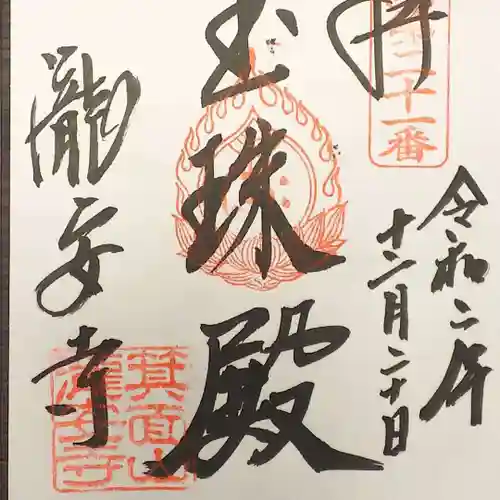 二十一番
令和二年
十二月二十日
玉珠殿
瀧安寺
箕面山
瀧安寺